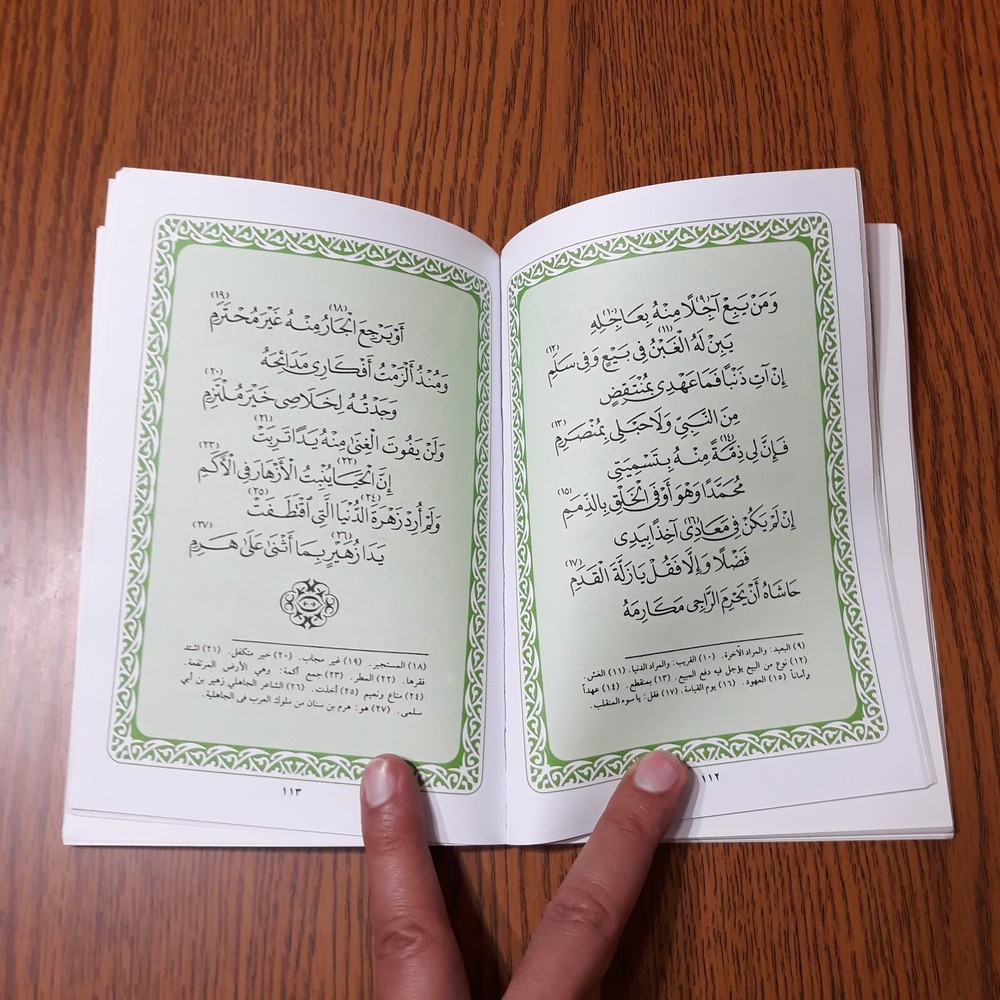 وَمَنْ يَبِعْ آجِلًا (٩) مِنْهُ بِعَاجِلِهِ (١٠)
يَبِنْ لَهُ الْغَبْنُ (١١) فِي بَيْعٍ وَفِي سَلَمِ (١٢)
إِنْ آتِ ذَنْبًا فَمَا عَهْدِي بِمُنْتَقِضٍ
مِنَ النَّبِيِّ وَلَا حَبْلِي بِمُنْصَرِمِ (١٣)
فَإِنَّ لِي ذِمَّةً (١٤) مِنْهُ بِتَسْمِيَتِي
مُحَمَّدًا وَهُوَ أَوْفَى الْخَلْقِ بِالذِّمَمِ (١٥)
إِنْ لَمْ يَكُنْ فِي مَعَادِي (١٦) آخِذًا بِيَدِي
فَضْلًا وَإِلَّا فَقُلْ يَا زَلَّةَ الْقَدَمِ (١٧)
حَاشَاهُ أَنْ يَحْرِمَ الرَّاجِي مَكَارِمَهُ
(٩) البعيد: والمراد الآخرة. (١٠) القريب: والمراد الدنيا. (١١) الغش.
(١٢) نوع من البيع يؤجل فيه دفع المبيع. (١٣) بمنقطع. (١٤) عهداً
وأماناً (١٥) العهود. (١٦) يوم القيامة. (١٧) فقل: يا سوء المنقلب.
١١٢
أَوْ يَرْجِعَ الْجَارُ (١٨) مِنْهُ غَيْرَ مُحْتَرَمِ (١٩)
وَمُنْذُ أَلْزَمْتُ أَفْكَارِي مَدَائِحَهُ
وَجَدْتُهُ لِخَلَاصِي خَيْرَ مُلْتَزِمِ (٢٠)
وَلَنْ يَفُوتَ الْغِنَى مِنْهُ يَدًا تَرِبَتْ (٢١)
إِنَّ الْحَيَا (٢٢) يُنْبِتُ الْأَزْهَارَ فِي الْأَكَمِ (٢٣)
وَلَمْ أُرِدْ زَهْرَةَ الدُّنْيَا (٢٤) الَّتِي اقْتَطَفَتْ (٢٥)
يَدَا زُهَيْرٍ (٢٦) بِمَا أَثْنَى عَلَى هَرِمِ (٢٧)
(١٨) المستجير. (١٩) غير مجاب. (٢٠) خير متكفل. (٢١) اشتد
فقرها. (٢٢) المطر. (٢٣) جمع أكمة: وهي الأرض المرتفعة.
(٢٤) متاع ونعيم (٢٥) أخذت. (٢٦) الشاعر الجاهلي زهير بن أبي
سلمى. (٢٧) هو: هرم بن سنان من ملوك العرب في الجاهلية.
١١٣